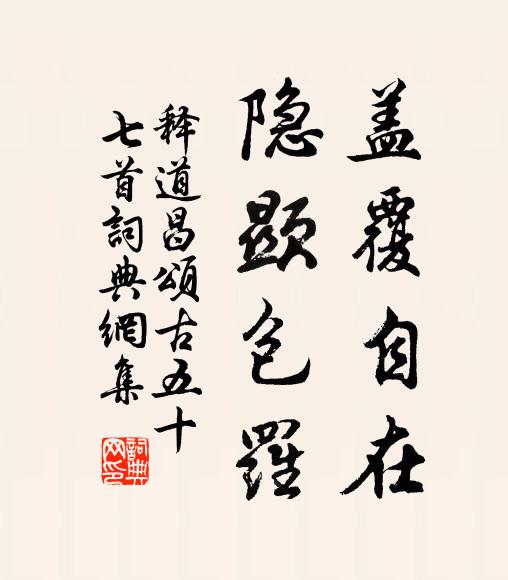 盖覆自在
隐顯包羅
释道昌頌古五十
七首詞典網集
詞典网印